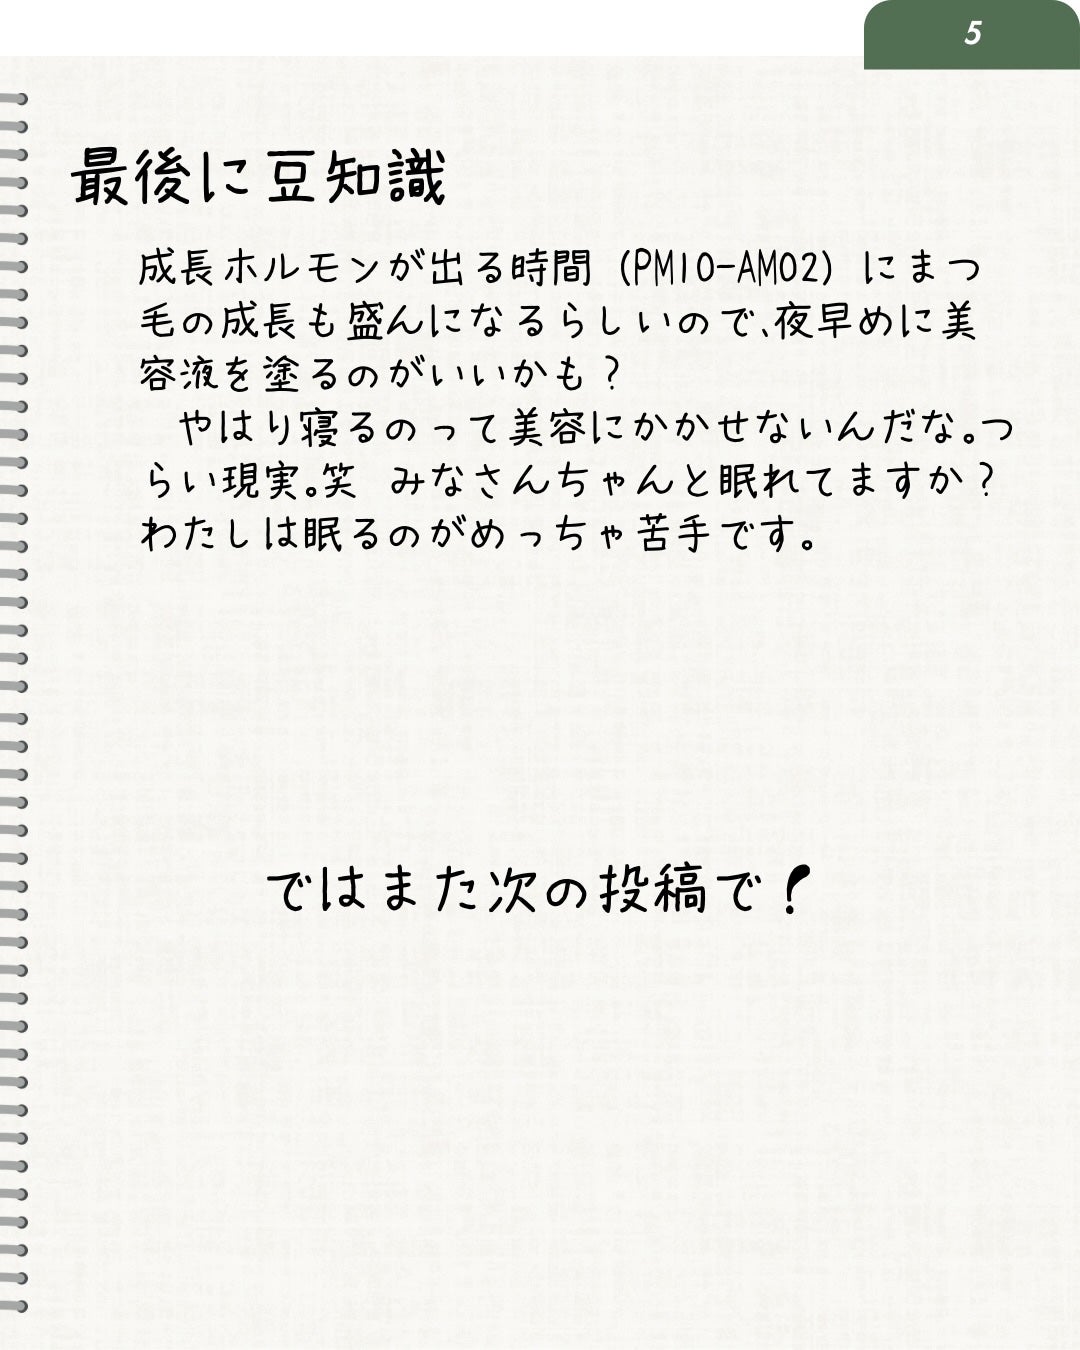 5
最後に豆知識
成長ホルモンが出る時間（PM10-AM02）にまつ
毛の成長も盛んになるらしいので、夜早めに美
容液を塗るのがいいかも？
やはり寝るのって美容にかかせないんだな。つ
らい現実。笑　みなさんちゃんと眠れてますか？
わたしは眠るのがめっちゃ苦手です。
ではまた次の投稿で！